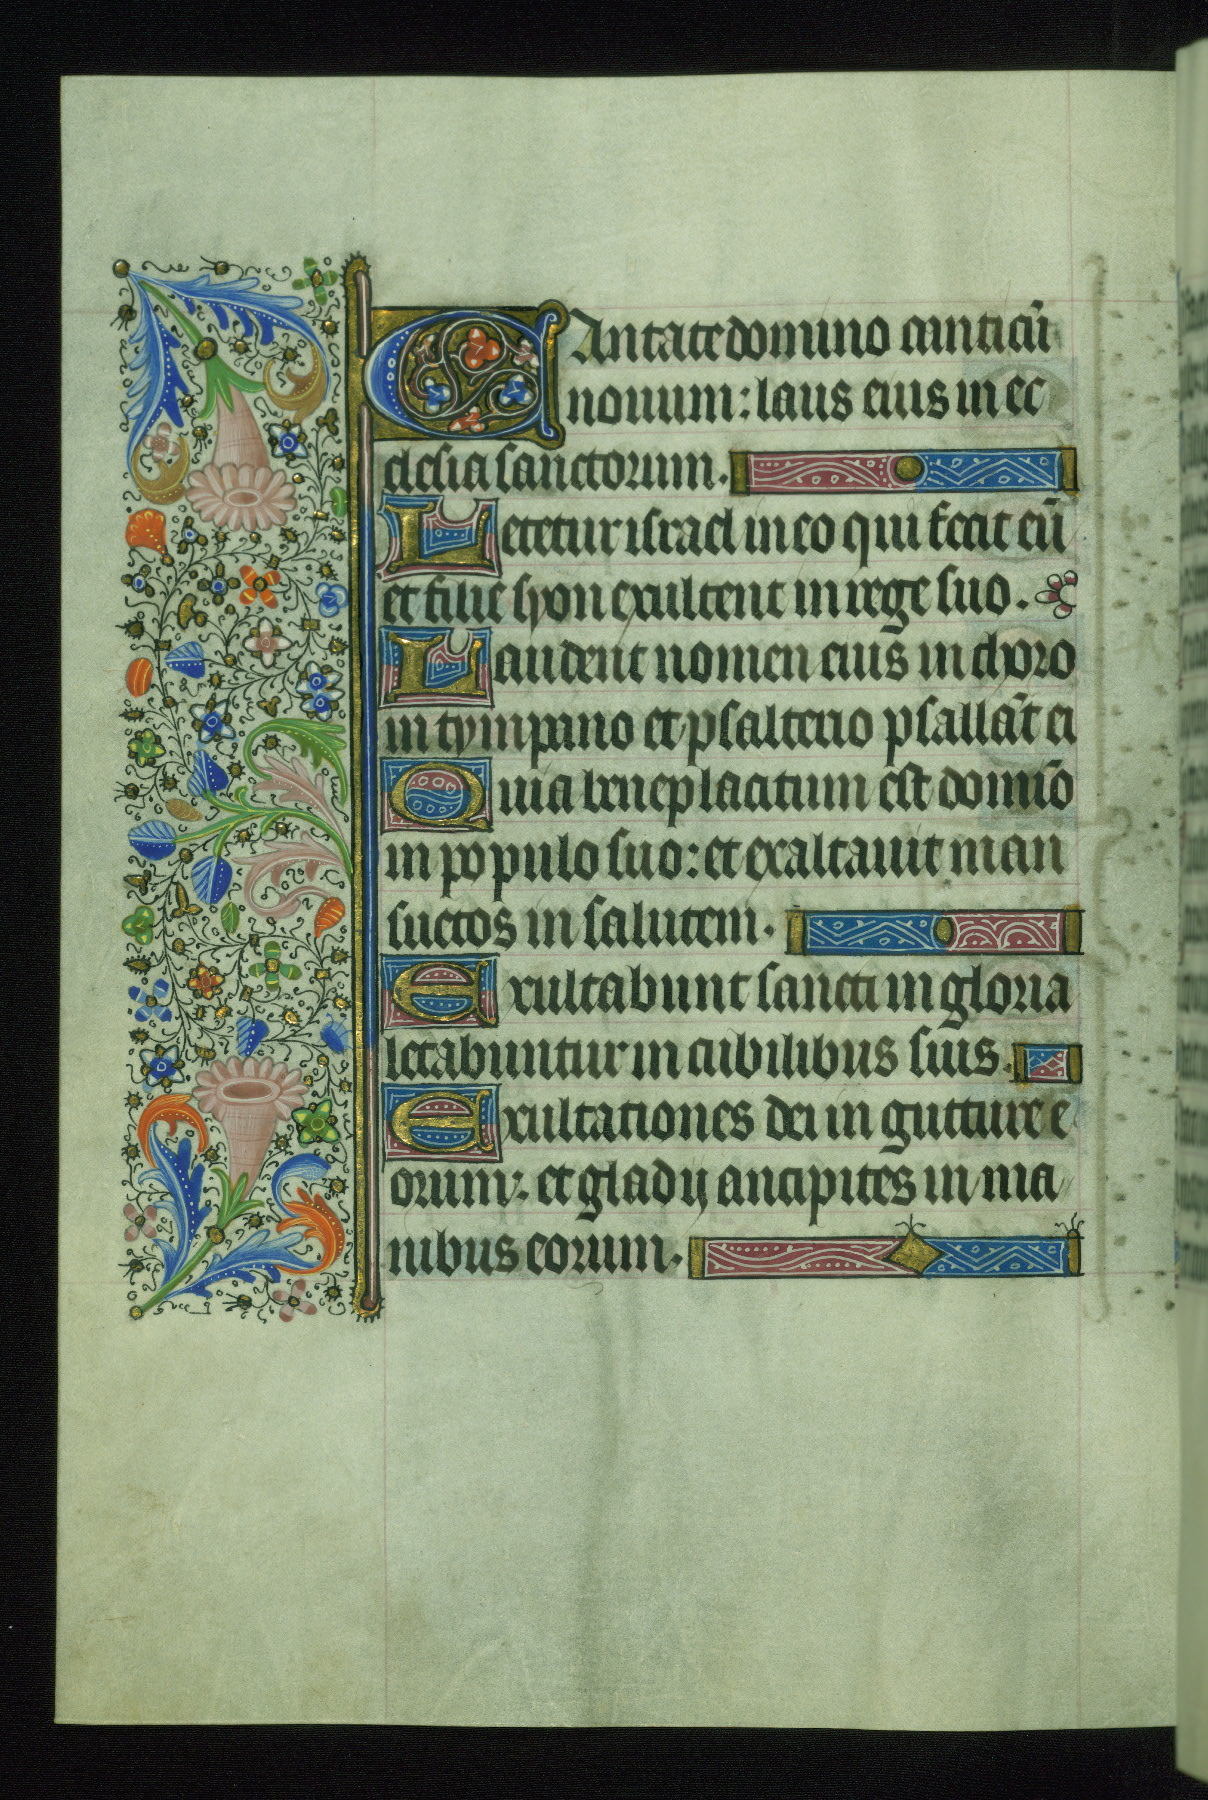 CAntate domino canticū
nouum: laus eius in ec
clesia sanctorum.
Letetur israel in eo qui fecit eū
et filie syon exultent in rege suo.
Laudent nomen eius in choro
in tympano et psalterio psallāt ei
Quia beneplacitum est domīo
in populo suo: et exaltauit man
suetos in salutem.
Exultabunt sancti in gloria
letabuntur in cubilibus suis.
Exultationes dei in gutture e
orum: et gladij ancipites in ma
nibus eorum.